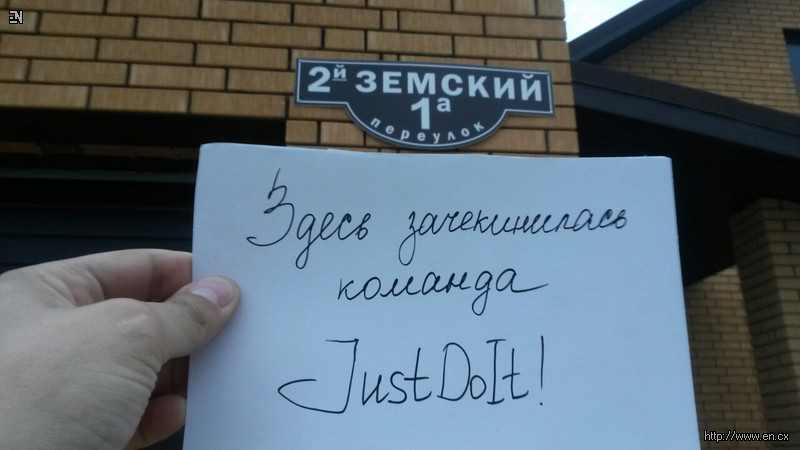 EN
2й ЗЕМСКИЙ
1а
переулок
Здесь зачекинилась
команда
JustDoIt!
http://www.en.cx